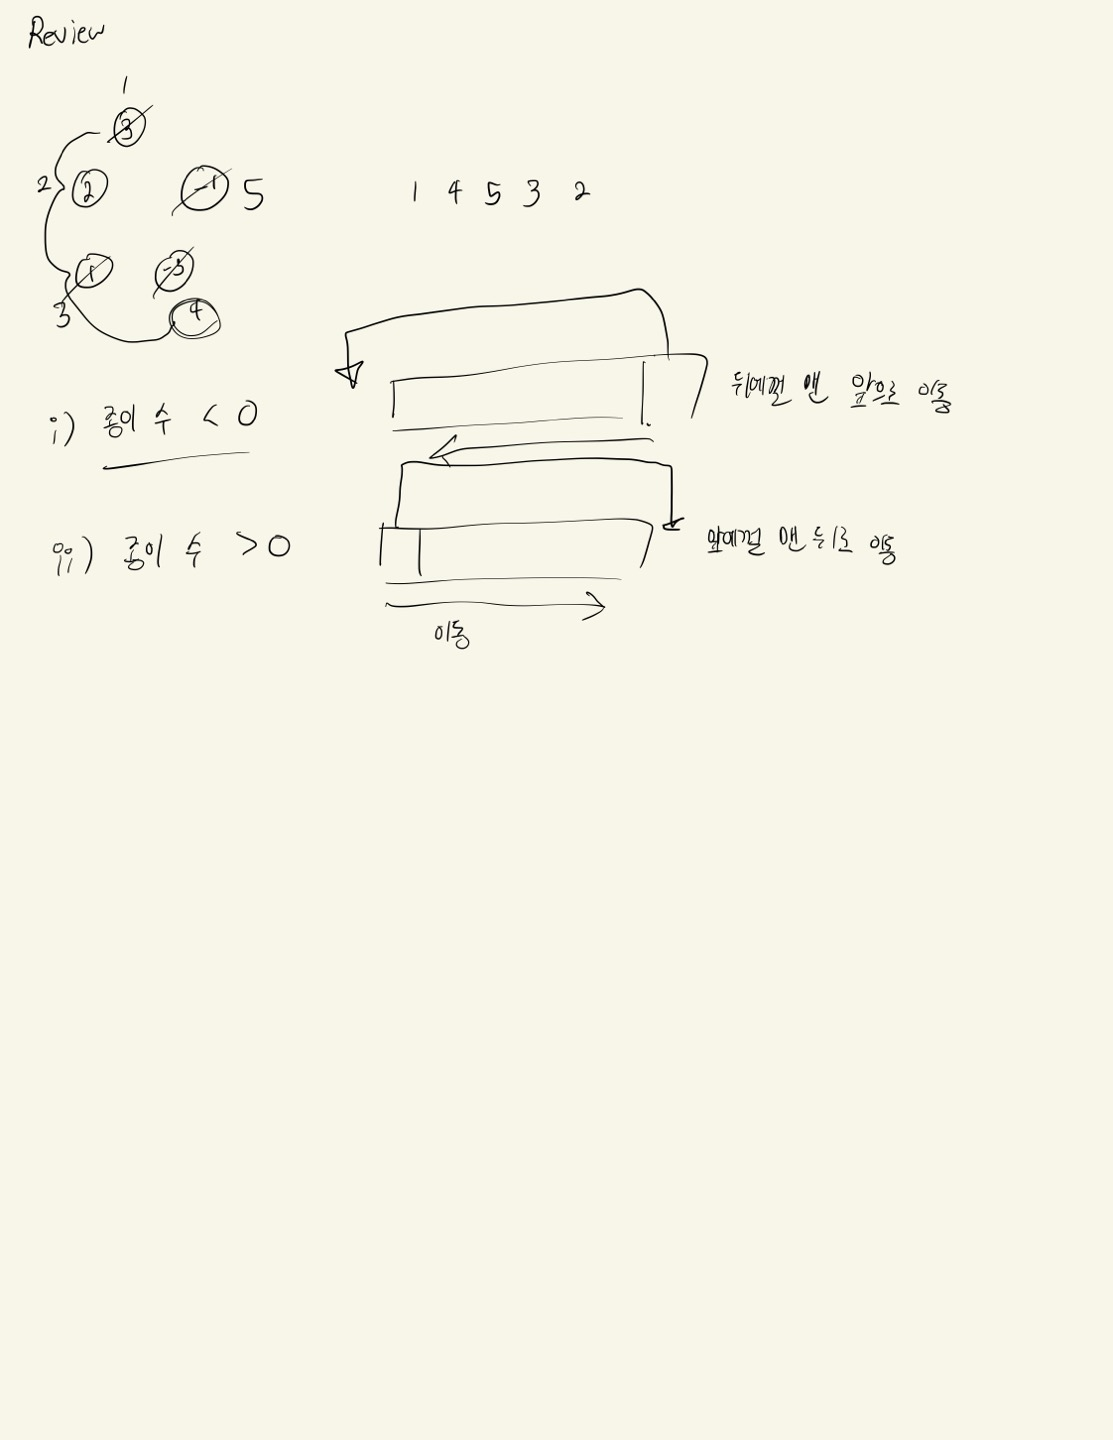 Review
1
3
2 2 -1 5
1 4 5 3 2
1 -3
3 4
뒤에껄 맨 앞으로 이동
i) 종이 수 < 0
ii) 종이 수 > 0
앞에껄 맨 뒤로 이동
이동